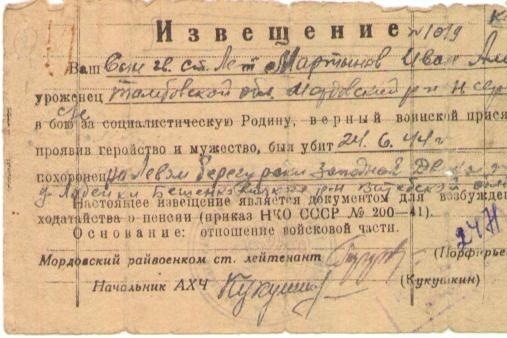 Извещение №1019
Ваш Сын гв. ст. Лет Мартынов Иван Але
уроженец Тамбовской обл Мордовский р-н
в бою за социалистическую Родину, верный воинской прися
проявив геройство и мужество, был убит 24.6.44 г
похоронен на Левом берегу реки Западной
д. Бешенковичского р-н Витебской обл
Настоящее извещение является документом для возбужде
ходатайства о пенсии (приказ НКО СССР № 200—41).
Основание: отношение войсковой части.
Мордовский райвоенком ст. лейтенант (Порфирье
Начальник АХЧ Кукушкин (Кукушкин)